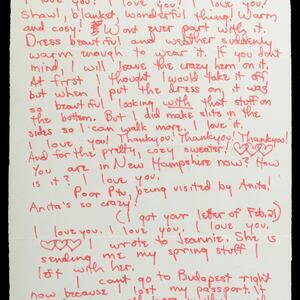 I love you! I love you! I love you!
Shawl, blanket, wonderful thing! Warm
and cozy! Wont ever part with it.
Dress beautiful and weather suddenly
warm enough to wear it. If you don't
mind, I will leave the crazy hem on it.
At first I thought I would take it off
but when I put the dress on, it was
so beautiful looking, with that stuff on
the bottom. But I did make slits in the
sides so I can walk more. I love it.
I love you! Thankyou! Thankyou! Thankyou!
And for the pretty, cozy sweater! ♡♡♡
You are in New Hampshire now? How
is it? I love you.
Poor Ptu, being visited by Anita!
Anita's so crazy!
(I got your letter of Feb. 21)
I love you. I love you. I love you.
♡♡♡ I wrote to Jeannie. She is
sending me my spring stuff I
left with her.
I cant go to Budapest right
now because I lost my passport. It